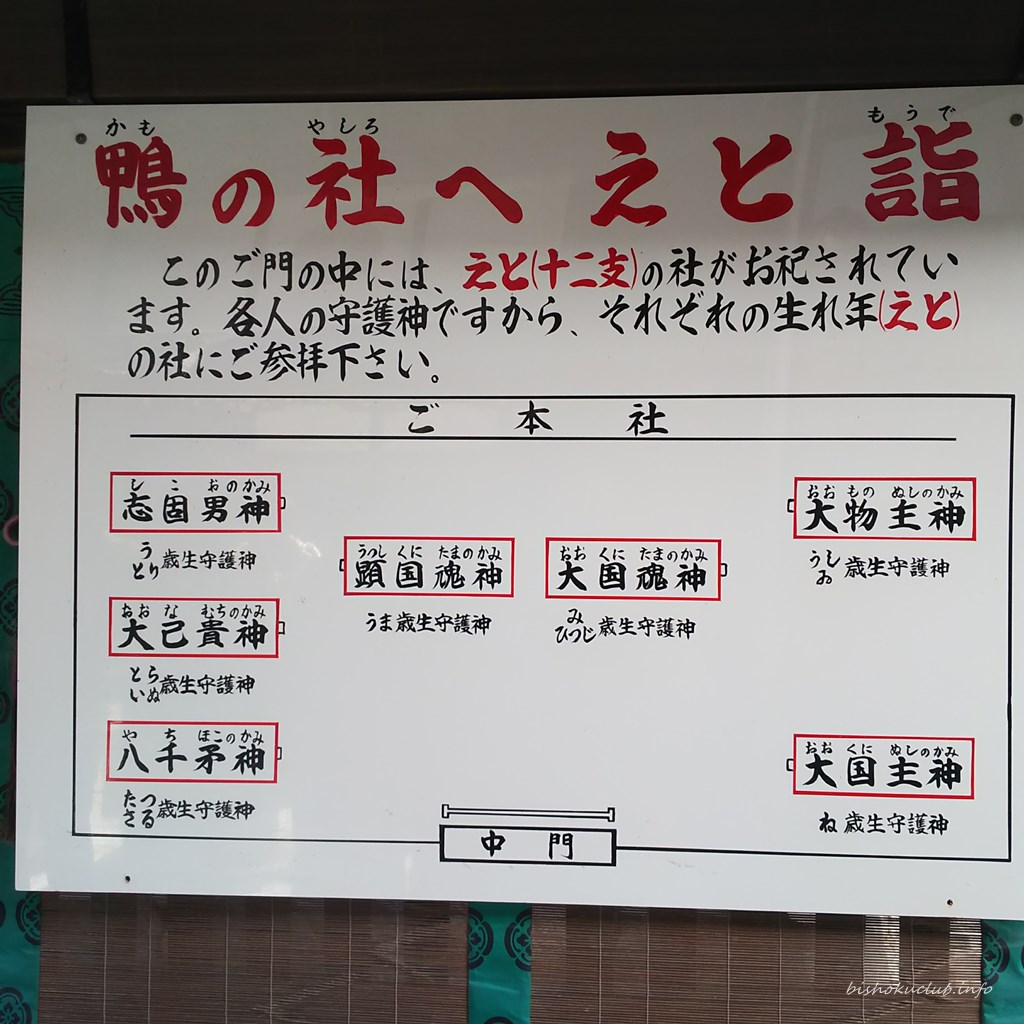 かも やしろ もうで
鴨の社へ えと詣
このご門の中には、えと(十二支)の社がお祀されてい
ます。各人の守護神ですから、それぞれの生れ年(えと)
の社にご参拝下さい。
ご本社
しこおのかみ
志固男神
うとり歳生守護神
おおなむちのかみ
大己貴神
とら いぬ歳生守護神
やちほこのかみ
八千矛神
たつ さる歳生守護神
うつしくにたまのかみ
顕国魂神
うま歳生守護神
おおくにたまのかみ
大国魂神
み ひつじ歳生守護神
おおものぬしのかみ
大物主神
うし ゐ歳生守護神
おおくにぬしのかみ
大国主神
ね歳生守護神
中門
bishokuclub.info